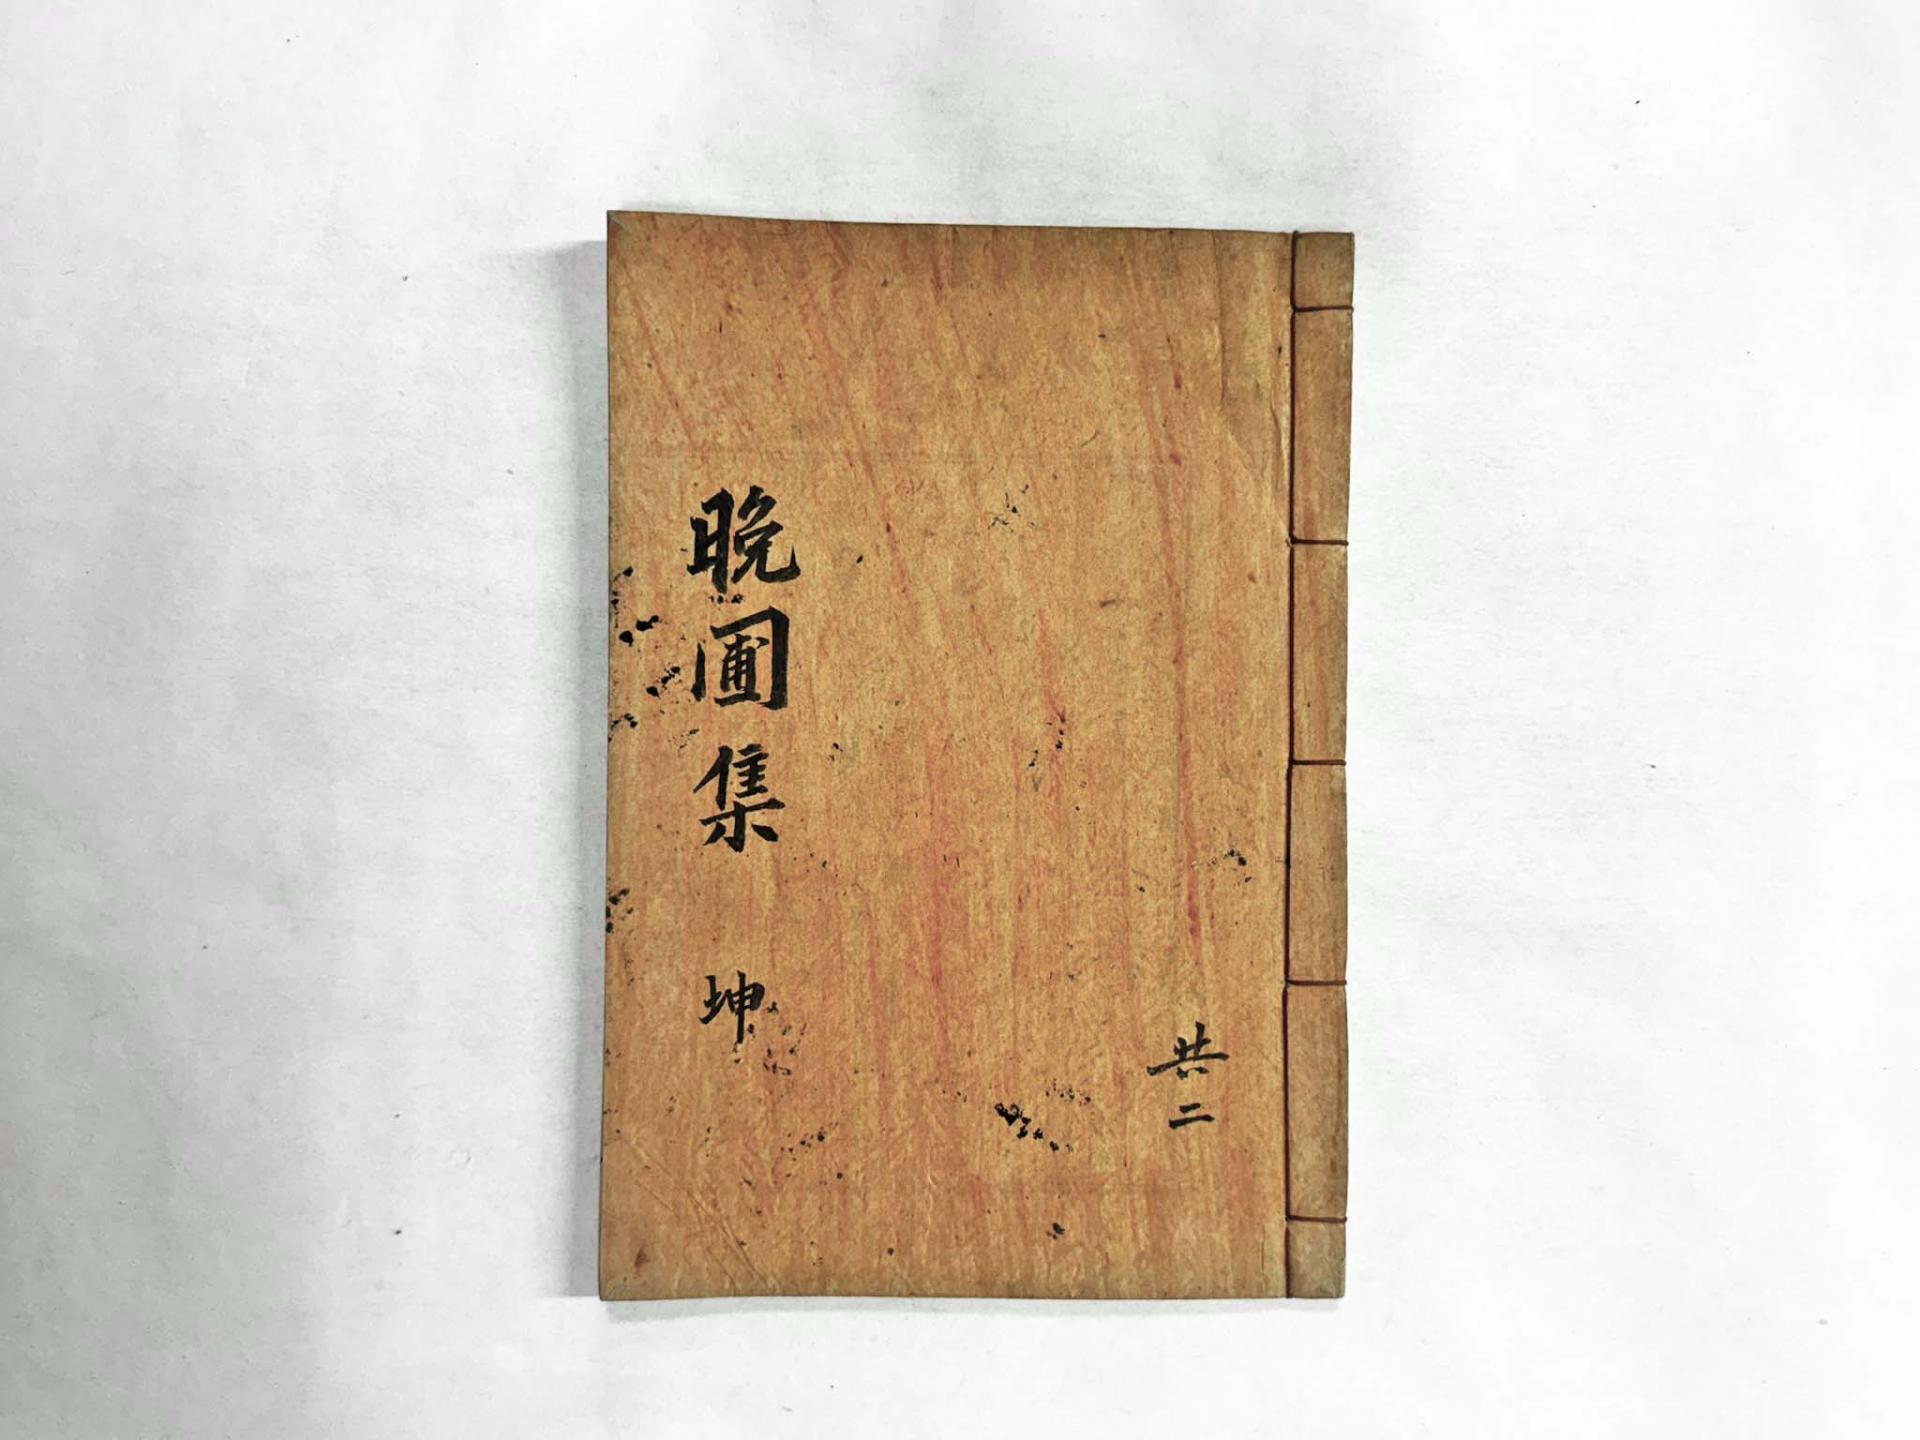 晚圃集 坤
共二